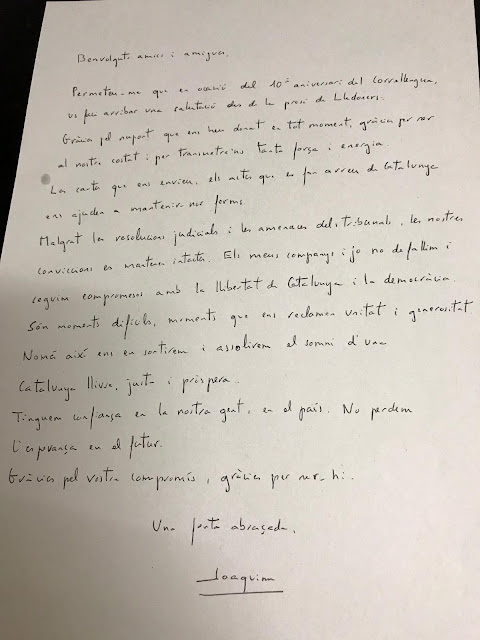 Benvolguts amics i amigues,
Permeteu-me que en ocasió del 10è aniversari del Correllengua,
us faci arribar una salutació des de la presó de Lledoners.
Gràcies pel suport que ens heu donat en tot moment, gràcies per ser
al nostre costat i per transmetre'ns tanta força i energia.
Les cartes que ens envieu, els actes que es fan arreu de Catalunya
ens ajuden a mantenir-nos ferms.
Malgrat les resolucions judicials i les amenaces dels tribunals, les nostres
conviccions es mantenen intactes. Els meus companys i jo no defallim i
seguim compromesos amb la llibertat de Catalunya i la democràcia.
Són moments difícils, moments que ens reclamen unitat i generositat.
Només així ens en sortirem i assolirem el somni d'una
Catalunya lliure, justa i pròspera.
Tinguem confiança en la nostra gent, en el país. No perdem
l'esperança en el futur.
Gràcies pel vostre compromís, gràcies per ser-hi.
Una forta abraçada,
Joaquim